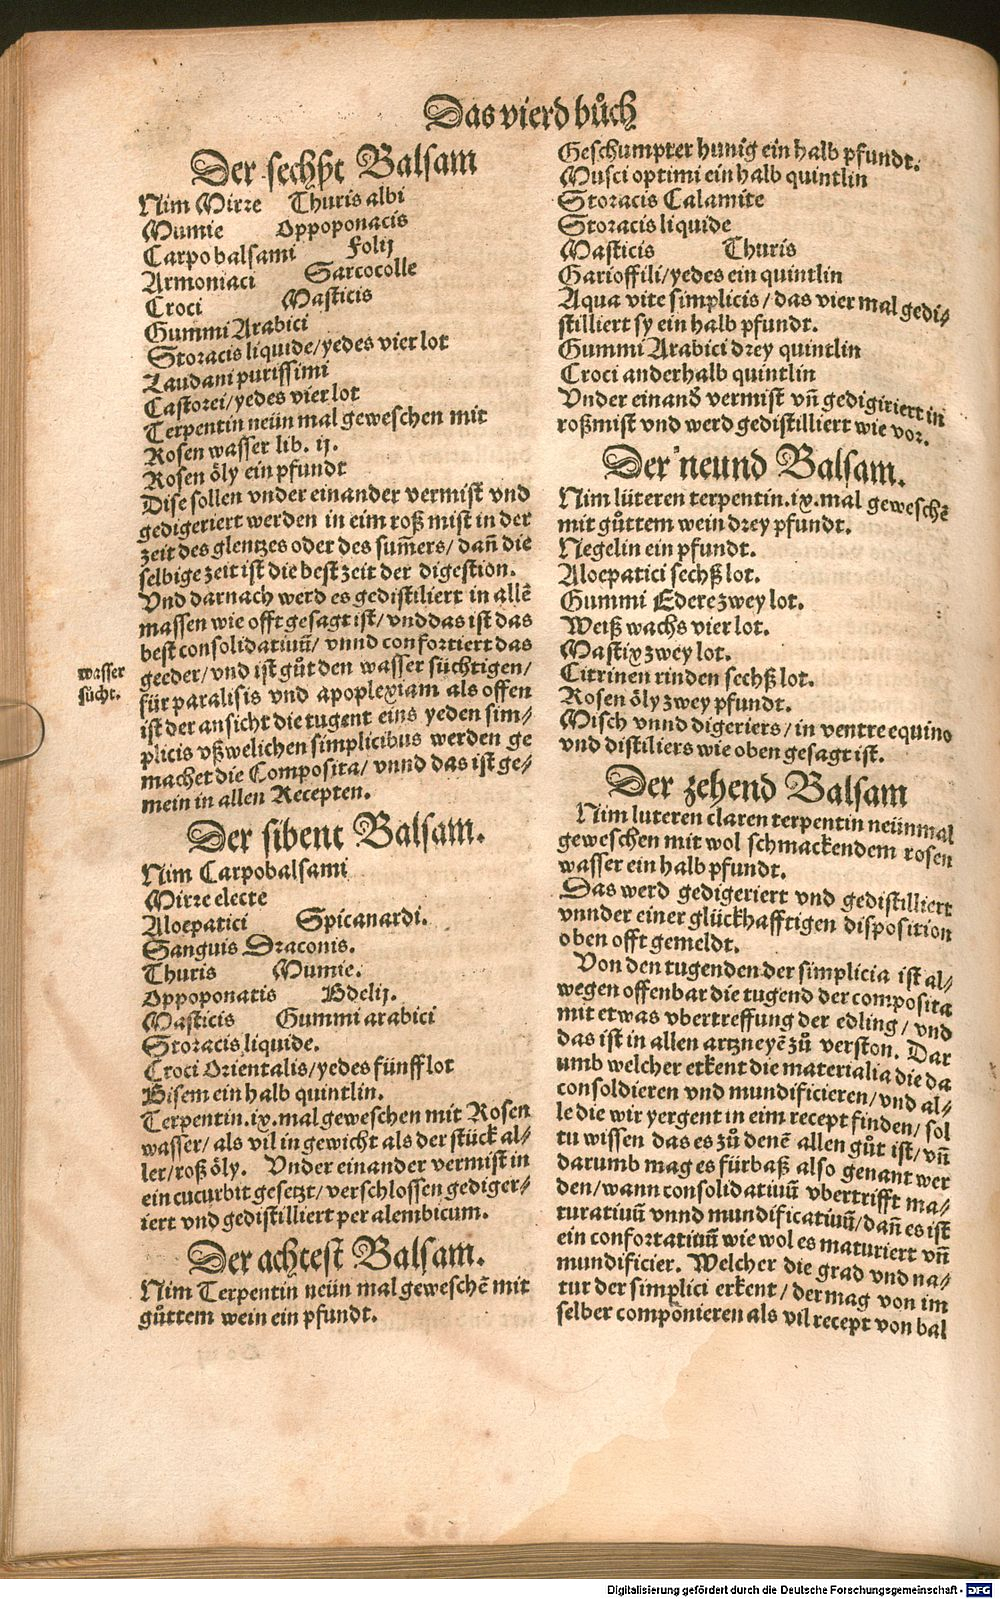 Das vierd bůch
Der sechßt Balsam
Nim Mirre Thuris albi
Mumie Oppoponacis
Carpobalsami Folij
Armoniaci Sarcocolle
Croci Masticis
Gummi Arabici
Storacis liquide/yedes vier lot
Laudani purissimi
Castorei/yedes vier lot
Terpentin neün mal geweschen mit
Rosen wasser lib. ij.
Rosen öly ein pfundt
Dise sollen vnder einander vermist vnd
gedigeriert werden in eim roß mist in der
zeit des glentzes oder des sum̃ers/ dañ die
selbige zeit ist die best zeit der digestion.
Vnd darnach werd es gedistiliert in allẽ
massen wie offt gesagt ist/ vnd das ist das
best consolidatiuũ/ vnnd confortiert das
geeder/vnd ist gůt den wasser süchtigen/
für paralisis vnd apoplexiam als offen
ist der ansicht die tugent eins yeden sim⸗
plicis vßwelichen simplicibus werden ge
machet die Composita/ vnnd das ist ge⸗
mein in allen Recepten.
wasser
sücht.
Der sibent Balsam.
Nim Carpobalsami
Mirre electe
Aloepatici Spicanardi.
Sanguis Draconis.
Thuris Mumie.
Oppoponatis Bdelij.
Masticis Gummi arabici
Storacis liquide.
Croci Orientalis/yedes fünff lot
Bisem ein halb quintlin.
Terpentin.ix.mal geweschen mit Rosen
wasser/ als vil in gewicht als der stück al⸗
ler/roß öly. Vnder einander vermist in
ein cucurbit gesetzt/verschlossen gediger⸗
iert vnd gedistilliert per alembicum.
Der achtest Balsam.
Nim Terpentin neün mal geweschẽ mit
gůttem wein ein pfundt.
Geschumpter hunig ein halb pfundt.
Musci optimi ein halb quintlin
Storacis Calamite
Storacis liquide
Masticis Thuris
Garioffili/yedes ein quintlin
Aqua vite simplicis/ das vier mal gedi⸗
stilliert sy ein halb pfundt.
Gummi Arabici drey quintlin
Croci anderhalb quintlin
Vnder einand̕ vermist vñ gedigiriert in
roßmist vnd werd gedistilliert wie vor.
Der neund Balsam.
Nim lüteren terpentin.ix.mal geweschẽ
mit gůttem wein drey pfundt.
Negelin ein pfundt.
Aloepatici sechß lot.
Gummi Edere zwey lot.
Weiß wachs vier lot.
Mastix zwey lot.
Citrinen rinden sechß lot.
Rosen öly zwey pfundt.
Misch vnnd digeriers/in ventre equino
vnd distiliers wie oben gesagt ist.
Der zehend Balsam
Nim luteren claren terpentin neünmal
geweschen mit wol schmackendem rosen
wasser ein halb pfundt.
Das werd gedigeriert vnd gedistilliert
vnnder einer glückhafftigen disposition
oben offt gemeldt.
Von den tugenden der simplicia ist al⸗
wegen offenbar die tugend der composita
mit etwas vbertreffung der edling/ vnd
das ist in allen artzneyẽ zů verston. Dar
umb welcher erkent die materialia die da
consoldieren vnd mundificieren/vnd al⸗
le die wir yergent in eim recept finden/ sol
tu wissen das es zů denẽ allen gůt ist/ vñ
darumb mag es fürbaß also genant wer
den/wann consolidatiuũ vbertrifft ma⸗
turatiuũ vnnd mundificatiuũ/dañ es ist
ein confortatiuũ wie wol es maturiert vñ
mundificier. Welcher die grad vnd na⸗
tur der simplici erkent/ der mag von im
selber componieren als vil recept von bal
Digitalisierung gefördert durch die Deutsche Forschungsgemeinschaft - DFG